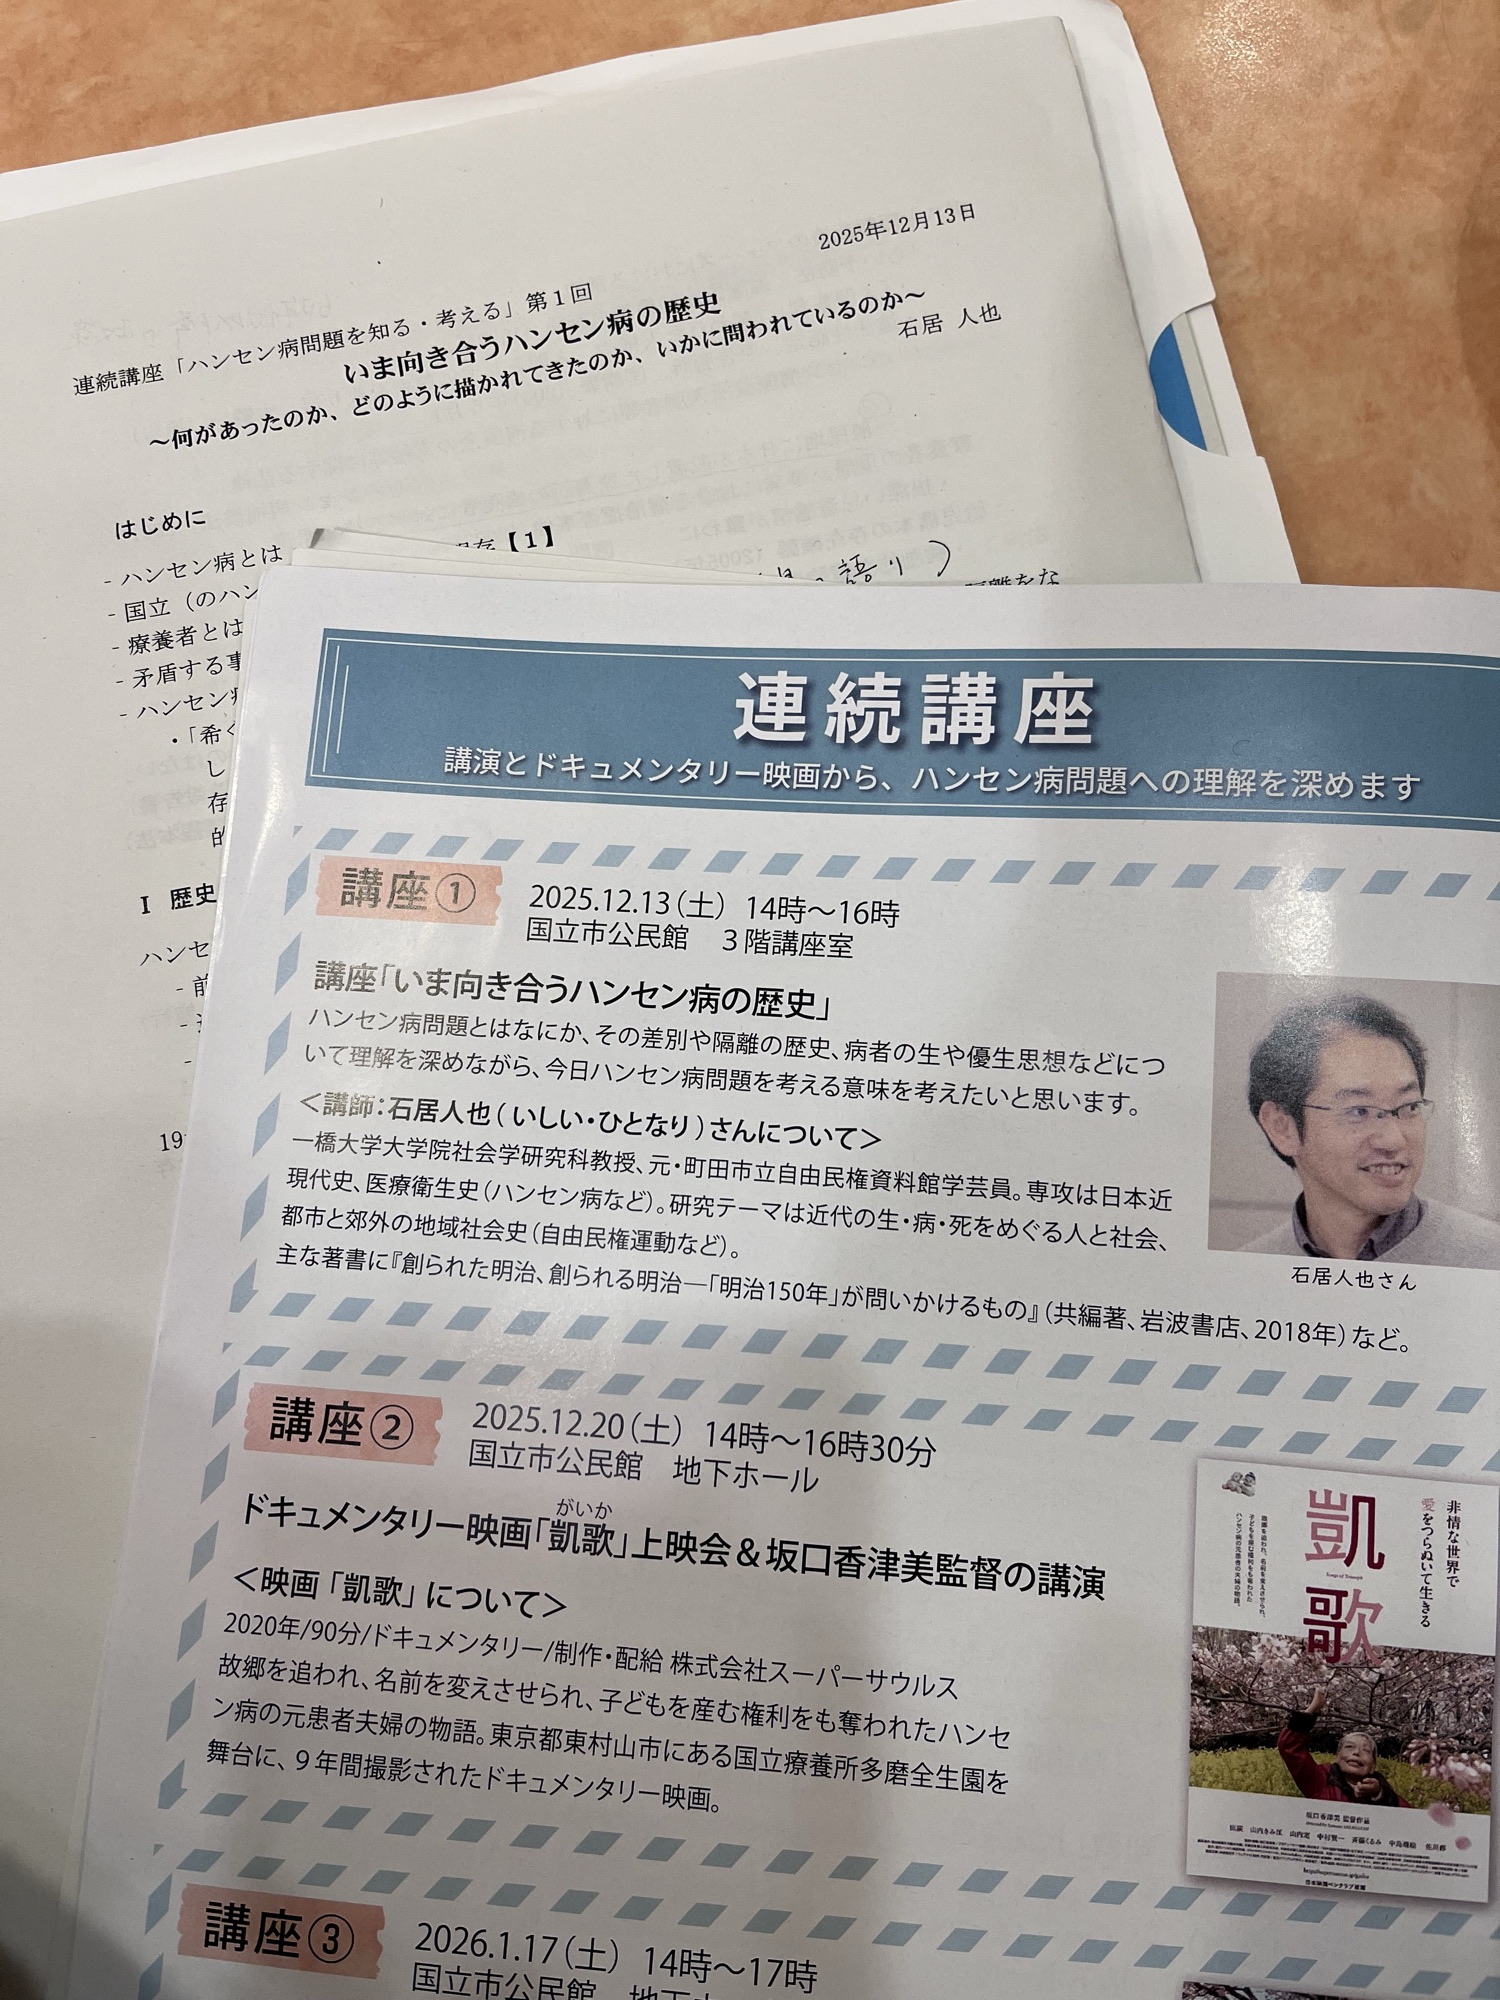 2025年12月13日
連続講座「ハンセン病問題を知る・考える」第1回
いま向き合うハンセン病の歴史
～何があったのか、どのように描かれてきたのか、いかに問われているのか～
石居 人也
はじめに
- ハンセン病とは
【1】
- 国立（のハン
語り）
隔離をな
- 療養者とは
- 矛盾する事
- ハンセン病
・「希く
し
存
的
I 歴史
ハンセ
- 前
19
連続講座
講演とドキュメンタリー映画から、ハンセン病問題への理解を深めます
講座①
2025.12.13（土） 14時～16時
国立市公民館 3階講座室
講座「いま向き合うハンセン病の歴史」
ハンセン病問題とはなにか、その差別や隔離の歴史、病者の生や優生思想などにつ
いて理解を深めながら、今日ハンセン病問題を考える意味を考えたいと思います。
＜講師：石居人也（いしい・ひとなり）さんについて＞
一橋大学大学院社会学研究科教授、元・町田市立自由民権資料館学芸員。専攻は日本近
現代史、医療衛生史（ハンセン病など）。研究テーマは近代の生・病・死をめぐる人と社会、
都市と郊外の地域社会史（自由民権運動など）。
主な著書に『創られた明治、創られる明治―「明治150年」が問いかけるもの』（共編著、岩波書店、2018年）など。
石居人也さん
講座②
2025.12.20（土） 14時～16時30分
国立市公民館 地下ホール
がいか
ドキュメンタリー映画「凱歌」上映会＆坂口香津美監督の講演
＜映画「凱歌」について＞
2020年/90分/ドキュメンタリー/制作・配給 株式会社スーパーサウルス
故郷を追われ、名前を変えさせられ、子どもを産む権利をも奪われたハンセ
ン病の元患者夫婦の物語。東京都東村山市にある国立療養所多磨全生園を
舞台に、9年間撮影されたドキュメンタリー映画。
非情な世界で
愛をつらぬいて生きる
凱歌
Songs of Triumph
故郷を追われ、名前を変えさせられ、
子どもを産む権利を奪われた
ハンセン病の元患者の夫婦の物語。
坂口香津美 監督作品
講座③
2026.1.17（土） 14時～17時
国立市公民館 地下ホ